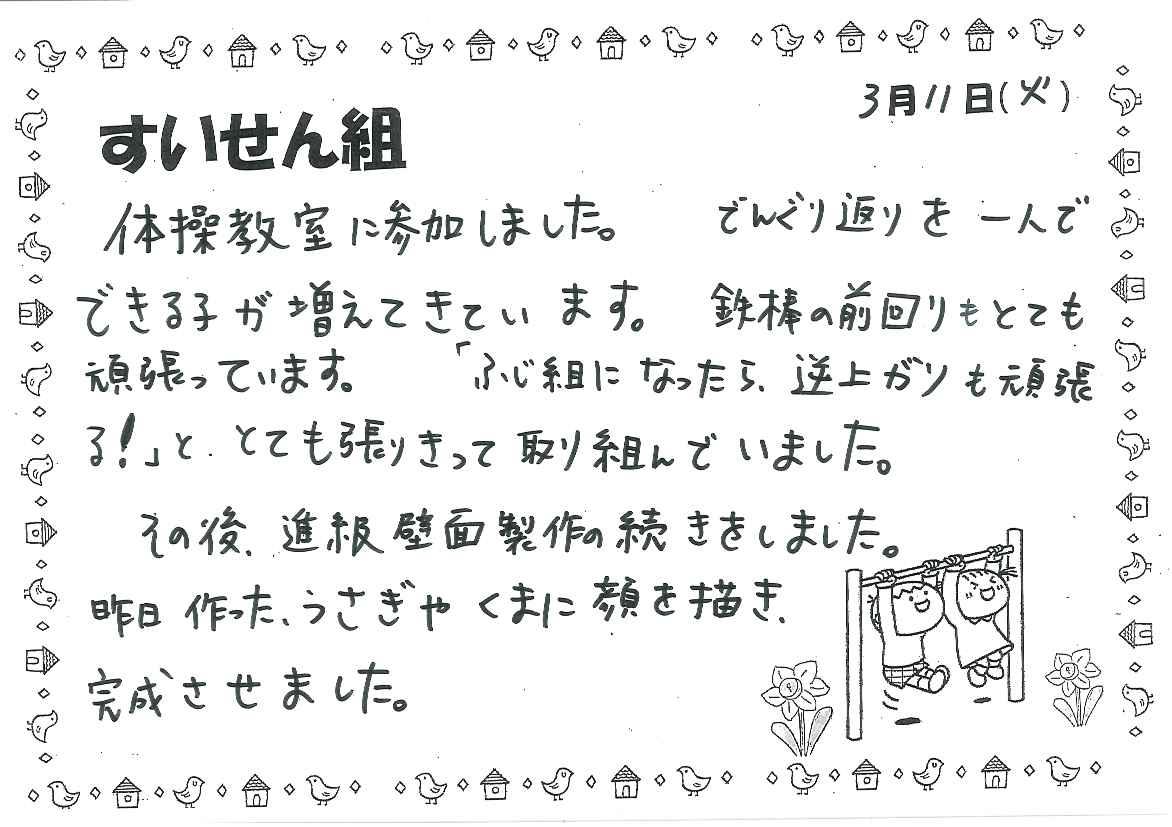 3月11日(火)
すいせん組
体操教室に参加しました。 でんぐり返りを一人で
できる子が増えてきています。 鉄棒の前回りもとても
頑張っています。 「ふじ組になったら、逆上ガリも頑張
る!」と、とても張りきって取り組んでいました。
その後、進級壁面製作の続きをしました。
昨日作った、うさぎやくまに顔を描き、
完成させました。